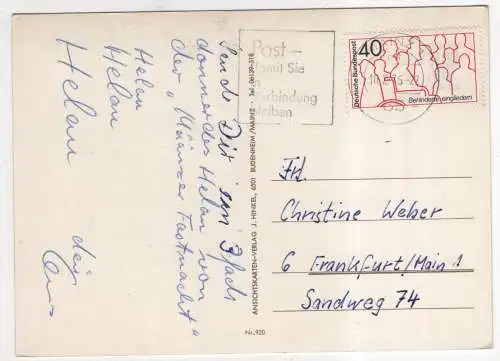 Sende Dir ein 3fach
donnerndes Helau von
der "Mainzer Fastnacht"
Helau
Helau
Helau
dein
Post –
damit Sie
in
Verbindung
bleiben
40
Deutsche Bundespost
Behinderte eingliedern
ANSICHTSKARTEN-VERLAG J. HINKEL, 6501 BUDENHEIM/MAINZ · Tel. (06139) 318
Nr. 920
Frl.
Christine Weber
6 Frankfurt/Main 1
Sandweg 74